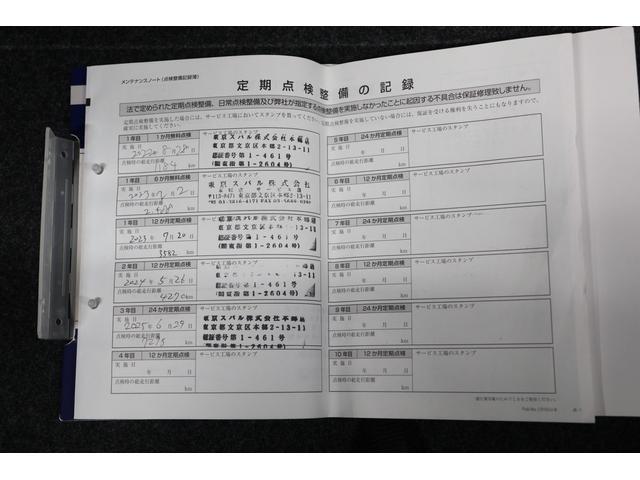 メンテナンスノート(点検整備記録簿)
定期点検整備の記録
法で定められた定期点検整備、日常点検整備及び弊社が指定する点検整備を実施しなかったことに起因する不具合は保証修理致しません。
定期点検整備を実施した場合には、サービス工場においてスタンプを買ってください。定期点検整備を実施していない場合には、保証を受ける権利を失うことにもなりますので、
確実に実施してください。
1年目 1か月無料点検 サービス工場のスタンプ
実施日 2022年8月28日
点検時の総走行距離 km
東京スバル株式会社本郷店
東京都文京区本郷2-13-11
認証番号第1-461号
(関東指第1-2604号)
1年目 6か月無料点検 サービス工場のスタンプ
実施日
点検時の総走行距離 km
東京スバル株式会社
1年目 12か月定期点検 サービス工場のスタンプ
実施日 2023年7月20日
点検時の総走行距離 3582 km
東京スバル株式会社本郷店
東京都文京区本郷2-13-11
認証番号第1-461号
(関東指第1-2604号)
2年目 12か月定期点検 サービス工場のスタンプ
実施日 2024年5月26日
点検時の総走行距離 4270 km
認証番号第1-461号
(関東指第1-2604号)
3年目 24か月定期点検 サービス工場のスタンプ
実施日 2025年6月29日
点検時の総走行距離 km
東京スバル株式会社本郷店
東京都文京区本郷2-13-11
認証番号第1-461号
(関東指第1-2604号)
4年目 12か月定期点検 サービス工場のスタンプ
実施日 年 月 日
点検時の総走行距離 km
5年目 24か月定期点検 サービス工場のスタンプ
実施日 年 月 日
点検時の総走行距離 km
6年目 12か月定期点検 サービス工場のスタンプ
実施日 年 月 日
点検時の総走行距離 km
7年目 24か月定期点検 サービス工場のスタンプ
実施日 年 月 日
点検時の総走行距離 km
8年目 12か月定期点検 サービス工場のスタンプ
実施日 年 月 日
点検時の総走行距離 km
9年目 24か月定期点検 サービス工場のスタンプ
実施日 年 月 日
点検時の総走行距離 km
10年目 12か月定期点検 サービス工場のスタンプ
実施日 年 月 日
点検時の総走行距離 km